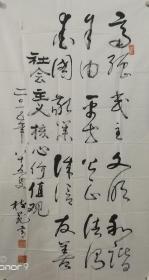 富强民主文明和諧
自由平等公正法治
爱國敬業诚信友善
社会主义核心价值观
二〇一五年